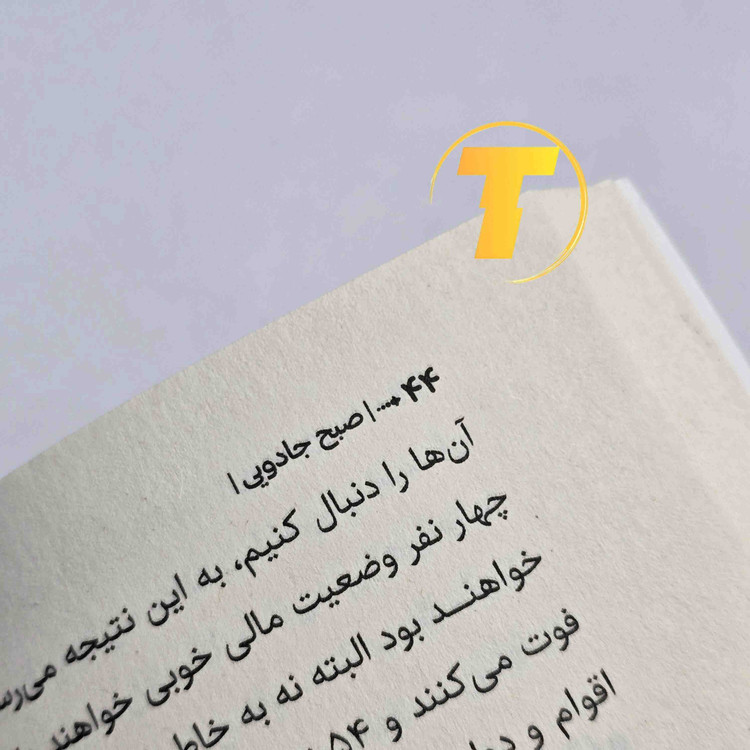 T
۴۴ ... | صبح جادویی |
آن‌ها را دنبال کنیم، به این نتیجه
چهار نفر وضعیت مالی خوبی خواهند
خواهنـد بود البته نه به
فوت می‌کنند و ۵۴
اقوام و